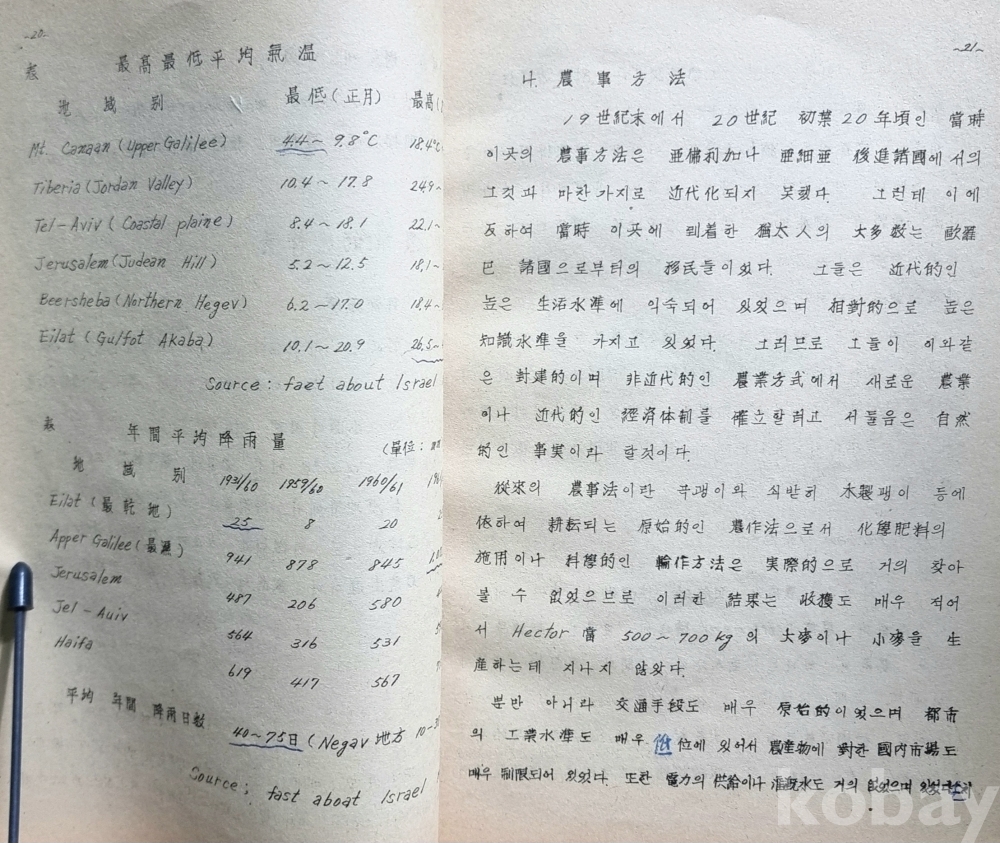 ~20~
表 最高最低平均氣温
地域別 最低(正月) 最高(
Mt. Canaan (Upper Galilee) 4.4~9.8°C 18.4°C
Tiberia (Jordan Valley) 10.4~17.8 24.9~
Tel-Aviv (Coastal plaine) 8.4~18.1 22.1~
Jerusalem (Judean Hill) 5.2~12.5 18.1~
Beersheba (Northern Hegev) 6.2~17.0 18.4~
Eilat (Gulfot Akaba) 10.1~20.9 26.5~
Source: faet about Israel
表 年間平均降雨量 (單位:
地域別 1931/60 1959/60 1960/61
Eilat (最乾地) 25 8 20
Apper Galilee (最濕) 941 878 845
Jerusalem 487 206 580
Jel-Auiv 564 316 531
Haifa 619 417 567
平均 年間 降雨日数 40~75日 (Negav 地方 10~
Source; fast aboat Israel
~21~
나. 農事方法
19世紀末에서 20世紀 初葉 20年頃인 當時
이곳의 農事方法은 亜佛利加나 亜細亜 後進諸國에서의
그것과 마찬가지로 近代化되지 못했다. 그런데 이에
反하여 當時 이곳에 到着한 猶太人의 大多数는 歐羅
巴 諸國으로부터의 移民들이었다. 그들은 近代的인
높은 生活水準에 익숙되어 있었으며 相對的으로 높은
知識水準을 가지고 있었다. 그러므로 그들이 이와같
은 封建的이며 非近代的인 農業方式에서 새로운 農業
이나 近代的인 經済体制를 確立할려고 서둘음은 自然
的인 事実이라 할것이다.
從來의 農事法이란 곡괭이와 쇠받히 木製괭이 등에
依하여 耕転되는 原始的인 農作法으로서 化學肥料의
施用이나 科學的인 輪作方法은 実際的으로 거의 찾아
볼 수 없었으므로 이러한 結果는 收獲도 매우 적어
서 Hector 當 500~700kg의 大麥이나 小麥을 生
産하는데 지나지 않았다.
뿐만 아니라 交通手段도 매우 原始的이었으며 都市
의 工業水準도 매우 低位에 있어서 農産物에 對한 國内市場도
매우 制限되어 있었다. 또한 電力의 供給이나 灌漑水도 거의 없었으며
kobay